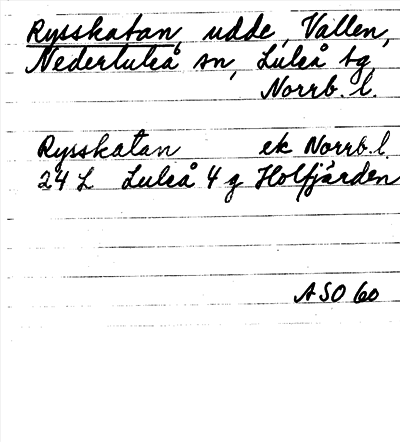 Rysskatan, udde, Vallen,
Nederluleå sn, Luleå tg
Norrb. l.
Rysskatan ek Norrb. l.
24 L Luleå 4 g Holfjärden
ASO 60